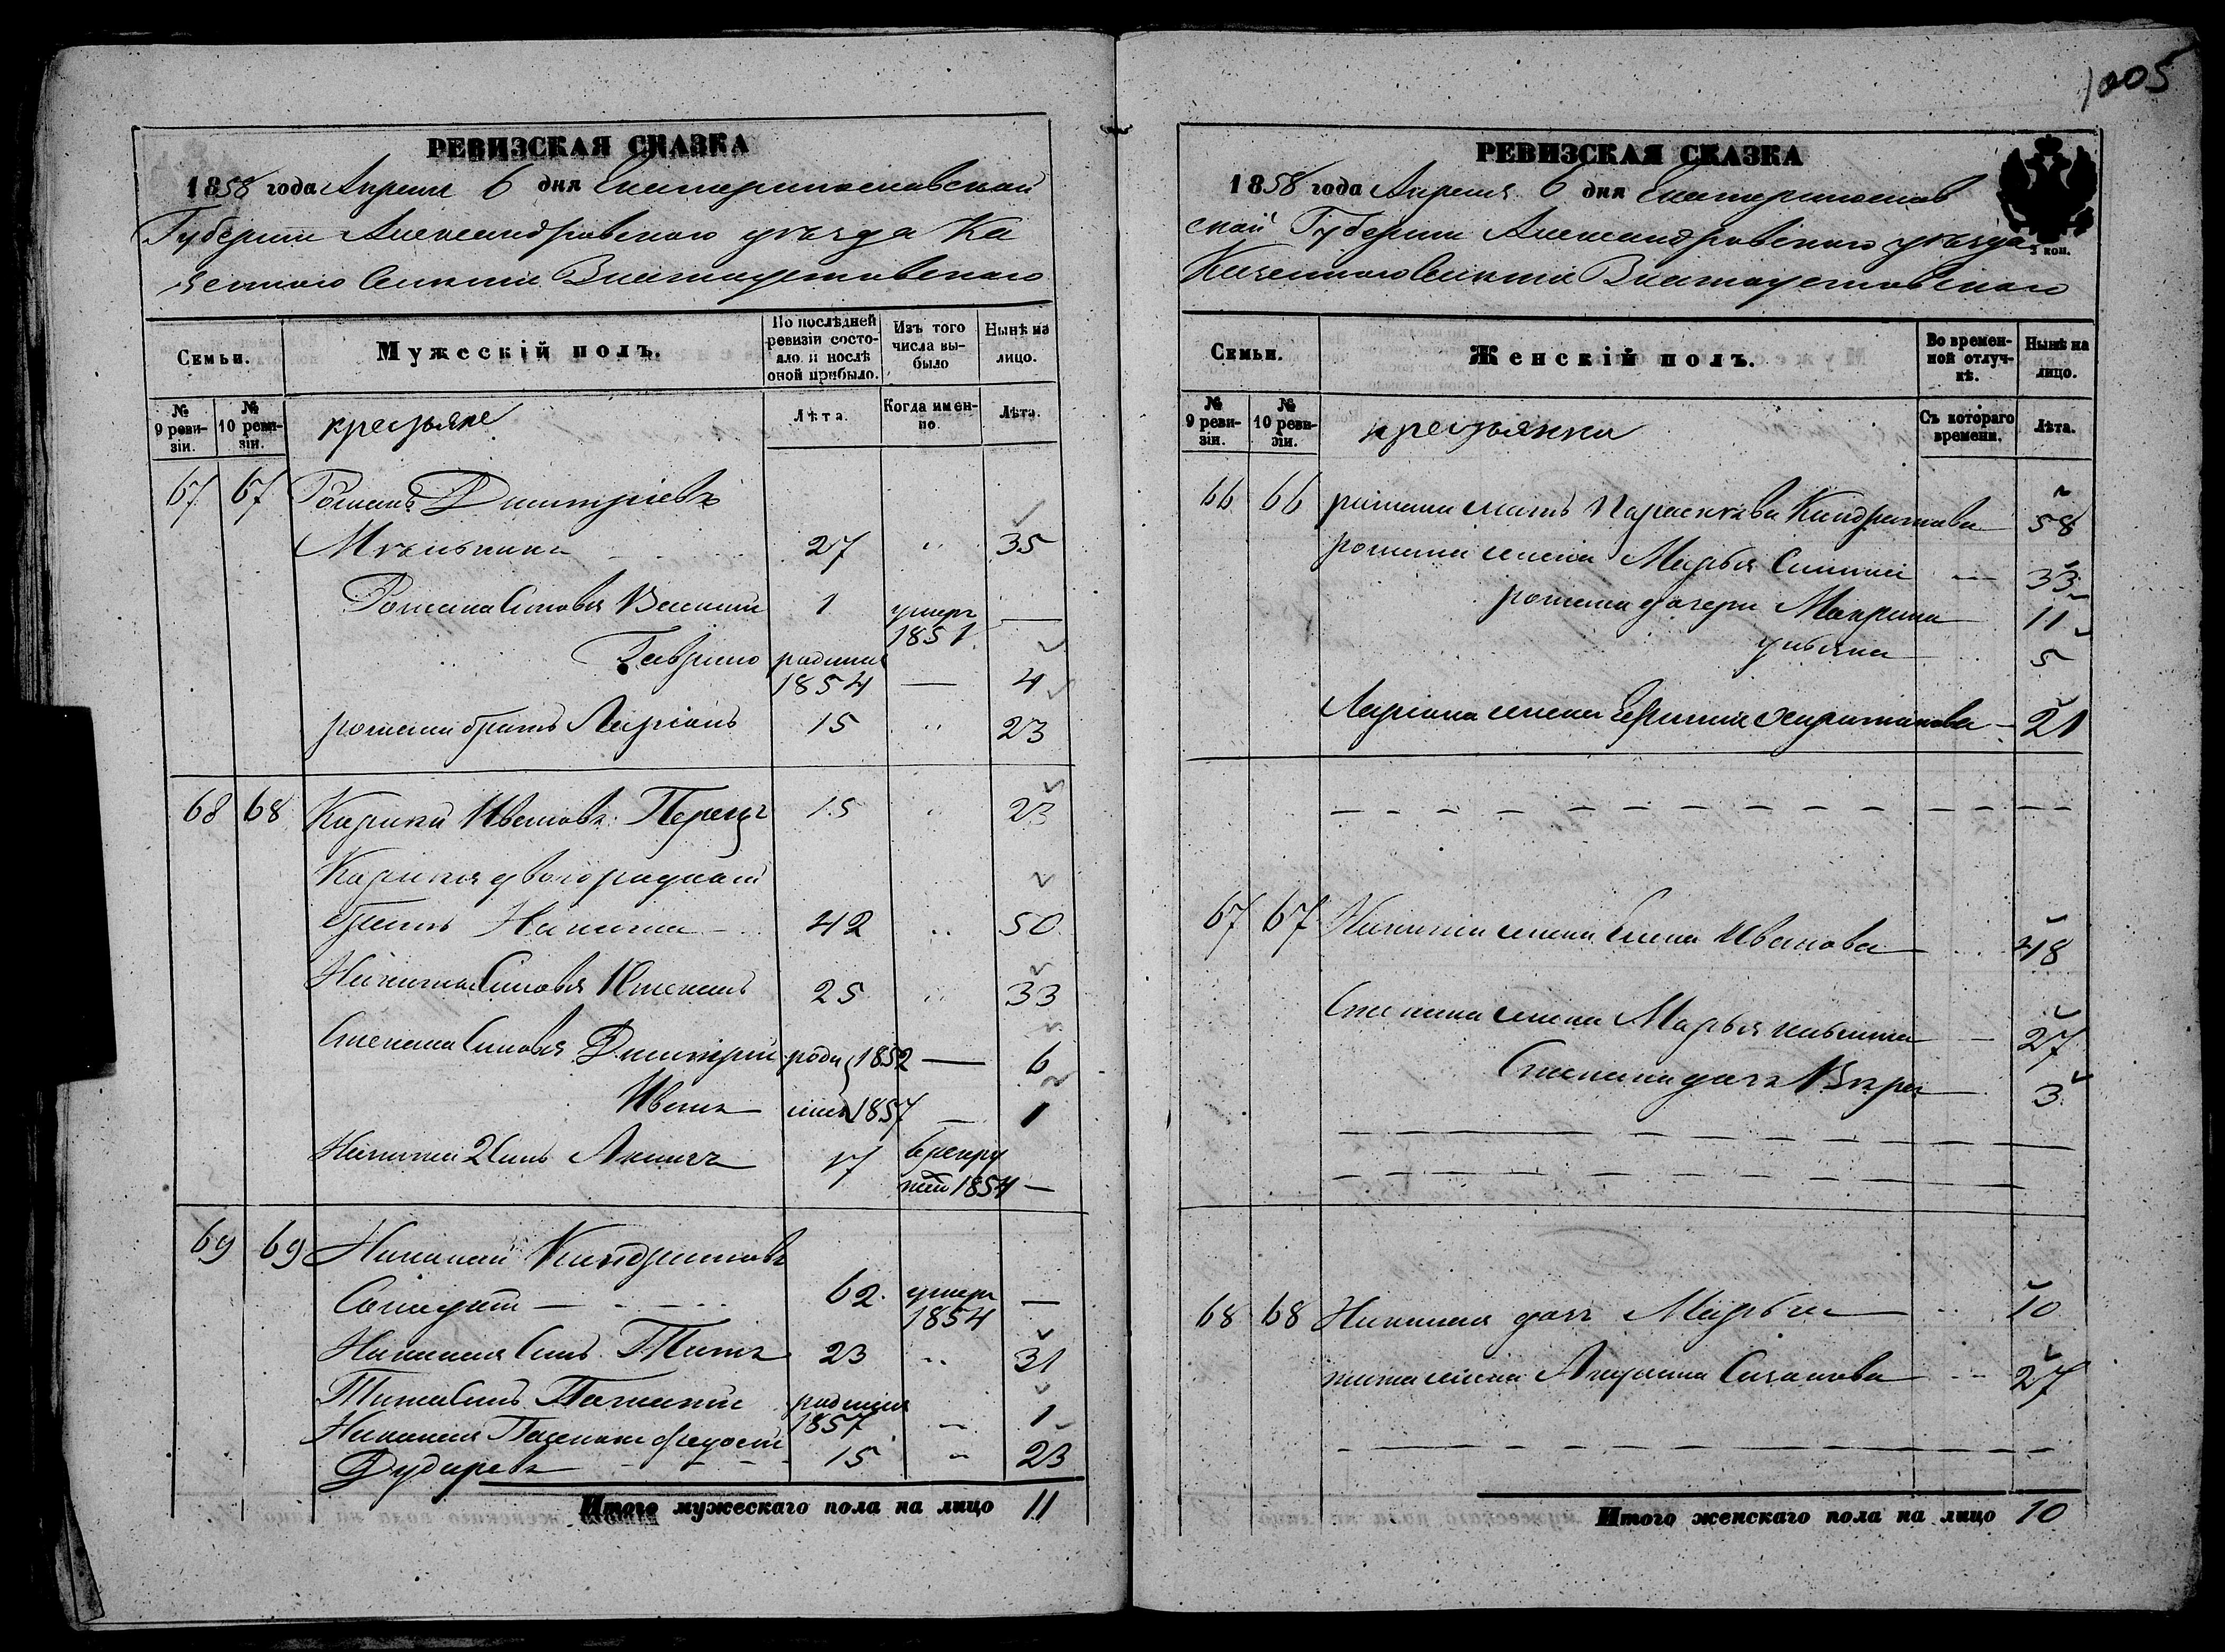 1005
РЕВИЗСКАЯ СКАЗКА
1858 года Апреля 6 дня Екатеринославской
Губернии Александровского уезда Ка
зенного Селения Златоустовского
Семьи.
Мужескій полъ.
По послѣдней ревизіи состояло и послѣ оной прибыло.
Изъ того числа выбыло
Нынѣ на лицо.
№ 9 ревизіи.
№ 10 ревизіи.
крестьяне
Лѣта.
Когда именно.
Лѣта.
67 67 Романъ Дмитріевъ
27 " 35
Романа Сыновья Василий 1 умеръ 1851 —
Гаврило родился 1854 — 4
романа братъ Ларіонъ 15 " 23
68 68 Ивановъ Перецъ 15 " 23
двоюродный
братъ Никита 42 " 50
Никиты Сыновья Степанъ 25 " 33
Степана Сыновья Дмитрий роди 1852 — 6
Иванъ лись 1857 — 1
Никиты 2 Сынъ Акимъ 17 в рекру
ты 1854 —
69 69 Николай Кондратовъ
62 умеръ 1854 —
Николая Сынъ Титъ 23 " 31
Тита Сынъ родился 1857 — 1
Николая
Дударевъ 15 " 23
Итого мужескаго пола на лицо 11
РЕВИЗСКАЯ СКАЗКА
1858 года Апреля 6 дня Екатеринослав
ской Губернии Александровского уезда
Казенного Селения Златоустовского
3 коп.
Семьи.
Женскій полъ.
Во временной отлучкѣ.
Нынѣ на лицо.
№ 9 ревизіи.
№ 10 ревизіи.
крестьянки
Съ котораго времени.
Лѣта.
66 66 романа мать Параскева Кондратова 58
романа жена Марья 33
романа дочери Макрина 11
ульяна 5
Ларіона жена 21
67 67 Никиты жена Елена Иванова 48
Степана жена Марья 27
Степана дочь Вера 3
68 68 Николая дочь Марья 10
тита жена Акулина 27
Итого женскаго пола на лицо 10